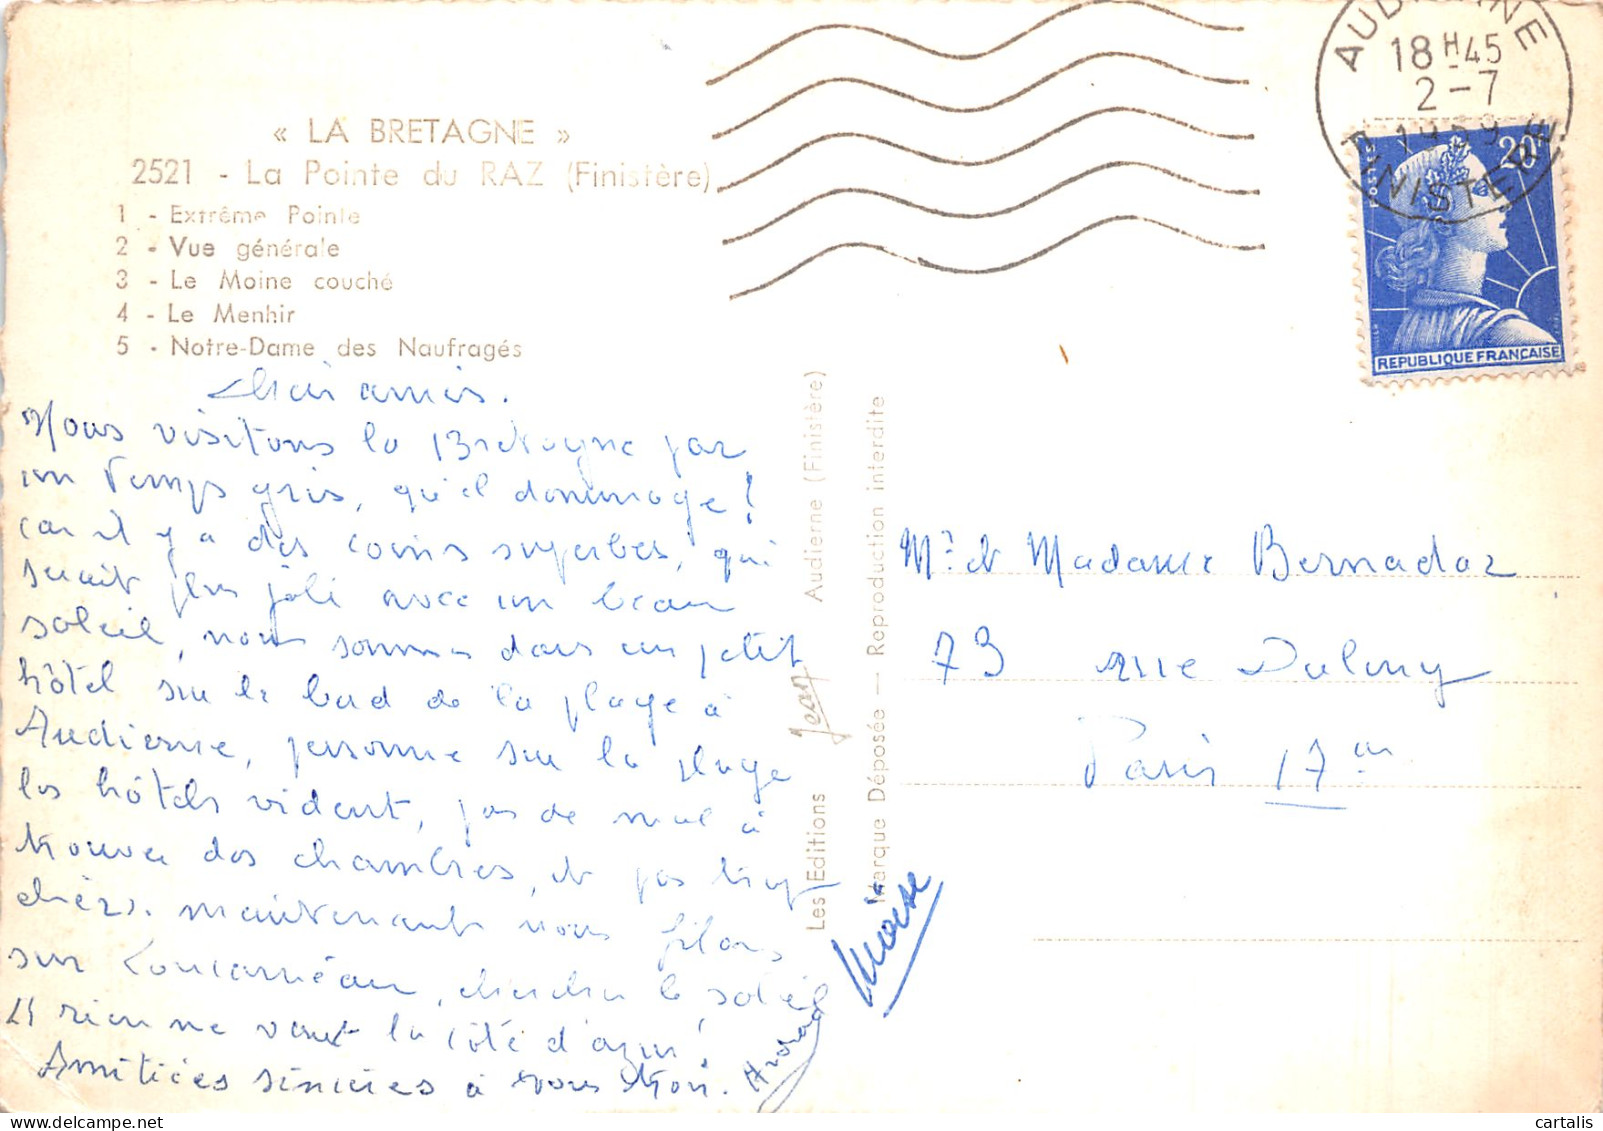 « LA BRETAGNE »
2521 - La Pointe du RAZ (Finistère)
1 - Extrême Pointe
2 - Vue générale
3 - Le Moine couché
4 - Le Menhir
5 - Notre-Dame des Naufragés
amis.
Nous visitons la Bretagne par
un temps gris, qu'el dommage !
car il y a des coins superbes, qui
serait plus joli avec un beau
soleil, nous sommes dans un petit
hôtel sur le bord de la plage à
Audierne, personne sur la plage
les hôtels vident, pas de mal à
trouver des chambres, et pas trop
chèrs. maintenant nous filons
sur Concarneau, chercher le soleil
et rien ne vaut la côté d'azur !
Amitiées sincères à vous
Moïse
Les Editions Jean Audierne (Finistère)
Marque Déposée — Reproduction interdite
AUDIERNE
18H45
2-7
1959
FINISTERE
20F
POSTES
REPUBLIQUE FRANÇAISE
Mr et Madame Bernadaz
73 rue Dulong
Paris 17em
cartalis